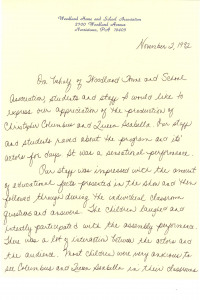 Woodland Home and School Association
2700 Woodland Avenue
Norristown, PA 19403
November 2, 1992
On behalf of Woodland Home and School
Association, students and staff I would like to
express our appreciation of the production of
Christopher Columbus and Queen Isabella. Our staff
and students raved about the program and its'
actors for days. It was a sensational performance.
Our staff was impressed with the amount
of educational facts presented in the show and then
followed through during the individual classroom
questions and answers. The children laughed and
intently participated with the assembly performers.
There was a lot of interaction between the actors and
the audience. Most children were very anxious to
see Columbus and Queen Isabella in their classrooms